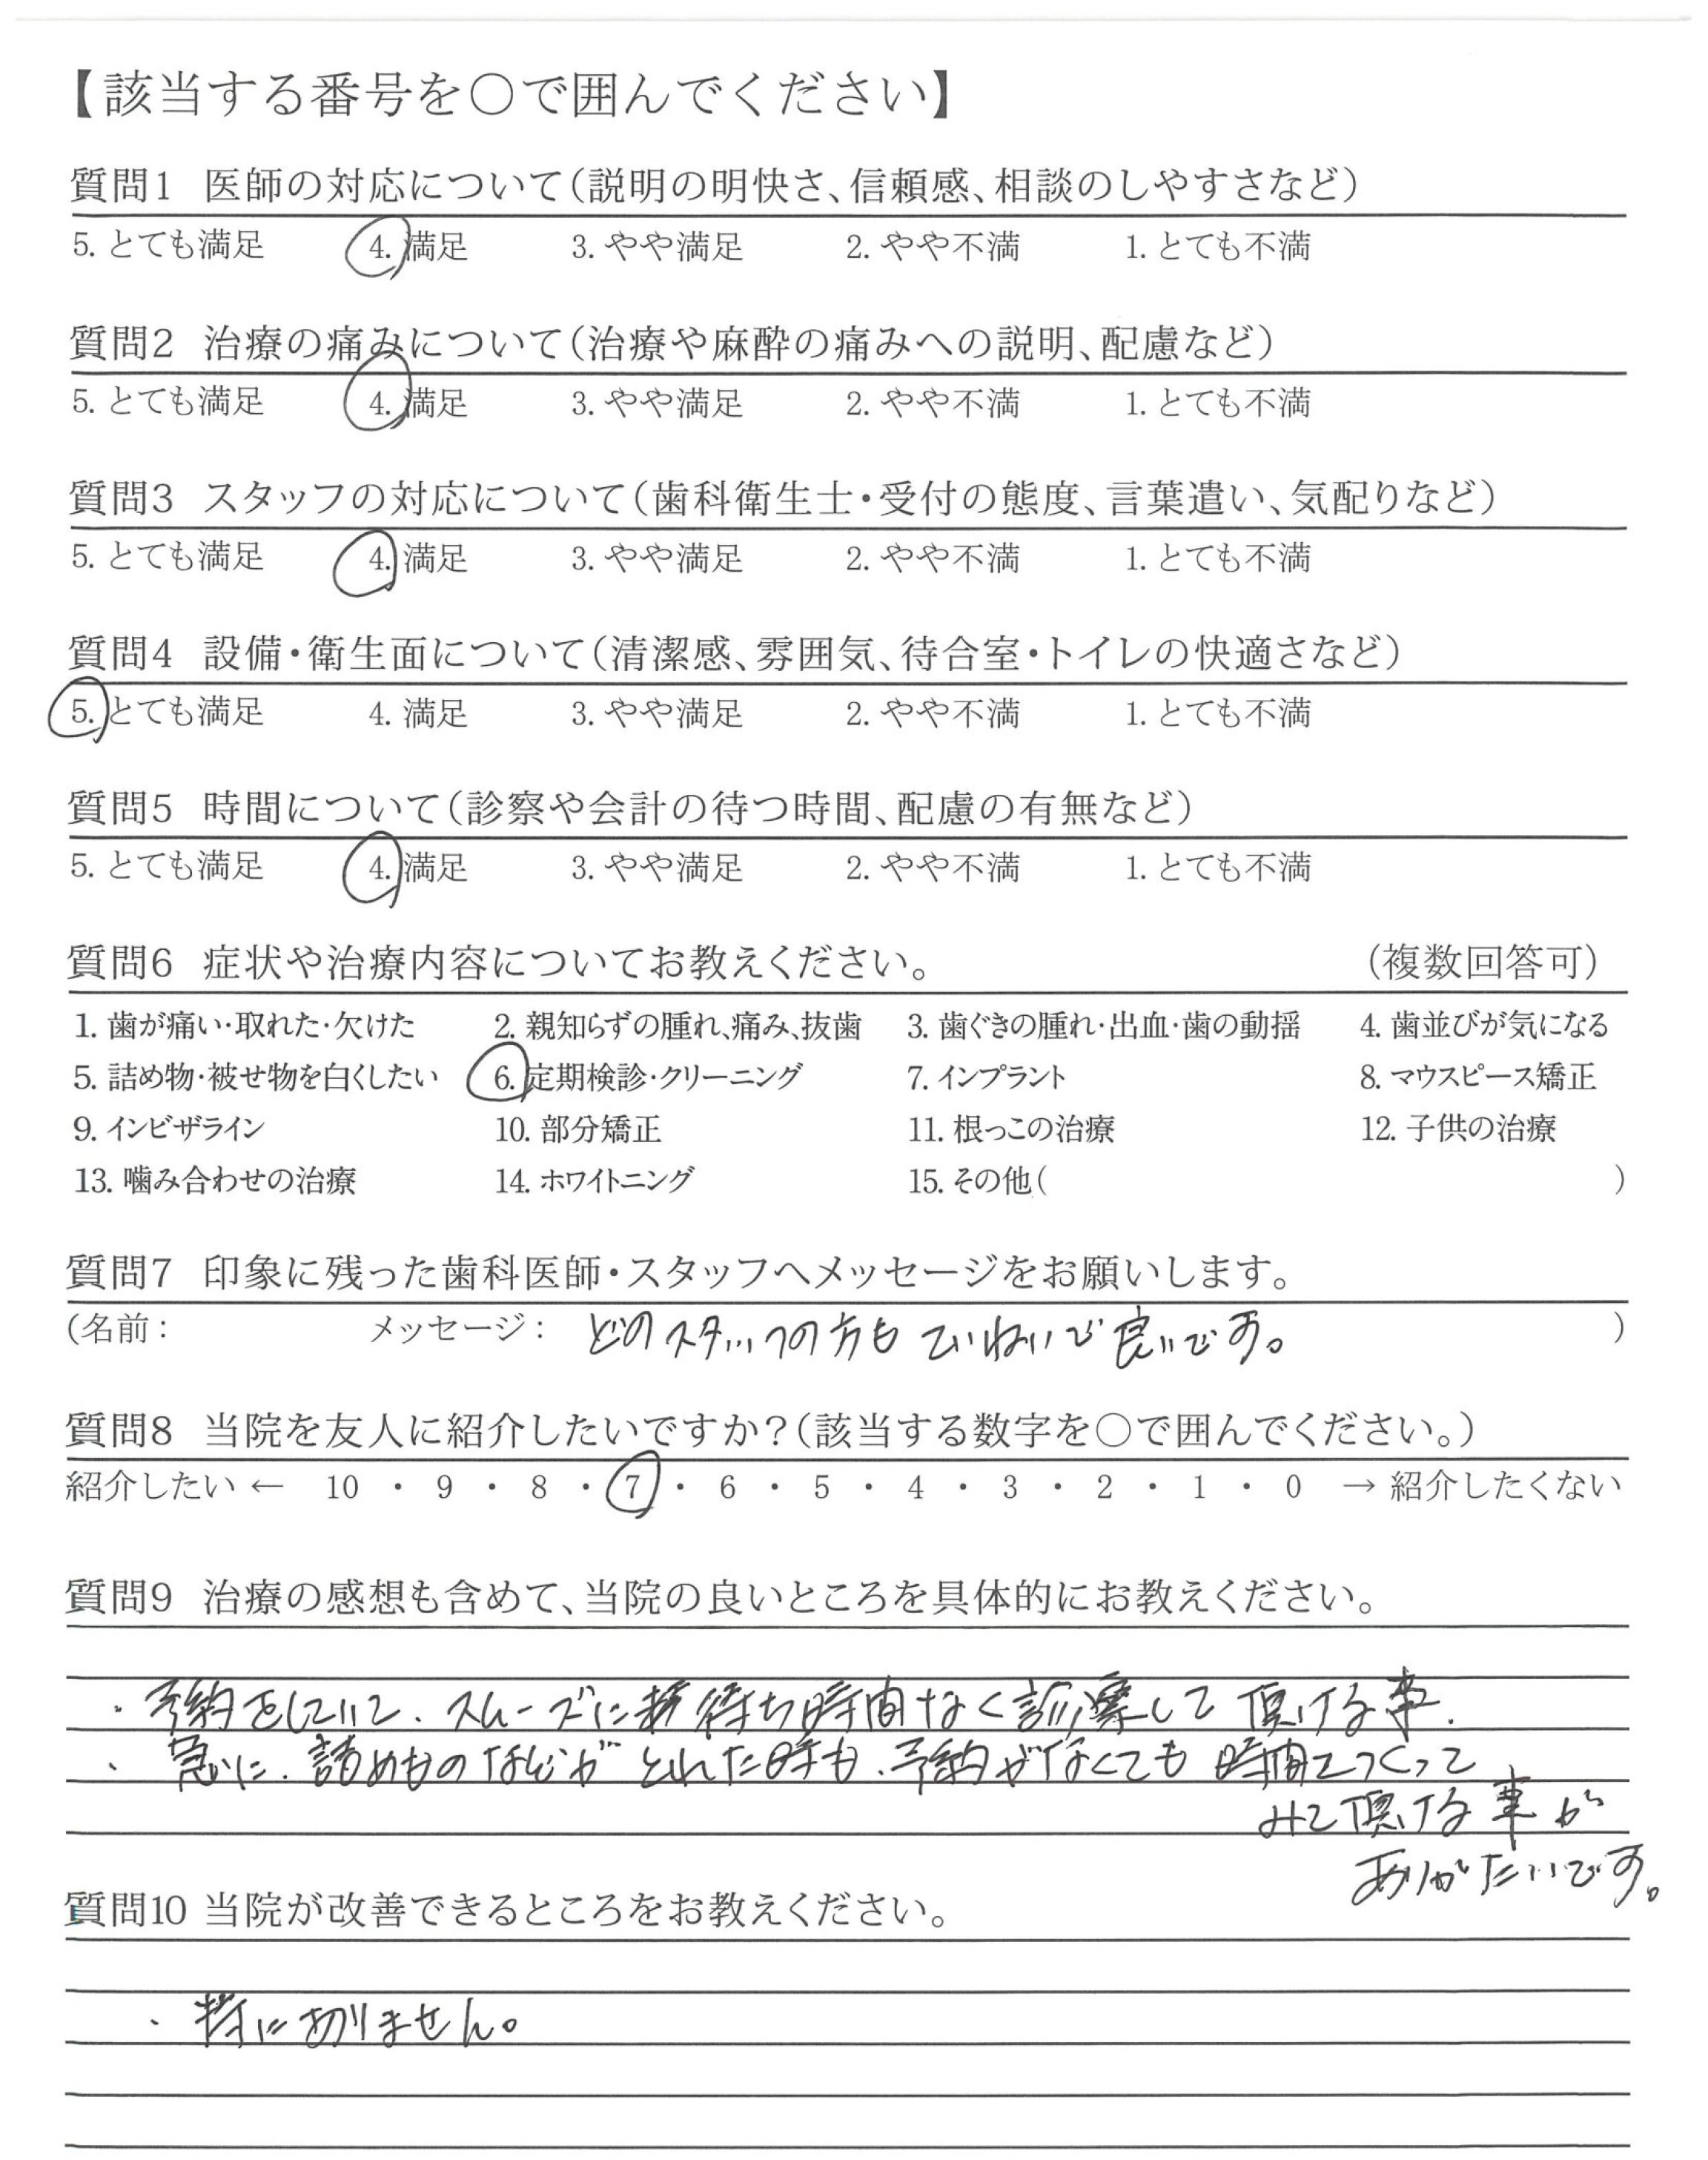 【該当する番号を○で囲んでください】
質問1 医師の対応について（説明の明快さ、信頼感、相談のしやすさなど）
5. とても満足 4. 満足 3. やや満足 2. やや不満 1. とても不満
質問2 治療の痛みについて（治療や麻酔の痛みへの説明、配慮など）
5. とても満足 4. 満足 3. やや満足 2. やや不満 1. とても不満
質問3 スタッフの対応について（歯科衛生士・受付の態度、言葉遣い、気配りなど）
5. とても満足 4. 満足 3. やや満足 2. やや不満 1. とても不満
質問4 設備・衛生面について（清潔感、雰囲気、待合室・トイレの快適さなど）
5. とても満足 4. 満足 3. やや満足 2. やや不満 1. とても不満
質問5 時間について（診察や会計の待つ時間、配慮の有無など）
5. とても満足 4. 満足 3. やや満足 2. やや不満 1. とても不満
質問6 症状や治療内容についてお教えください。 （複数回答可）
1. 歯が痛い・取れた・欠けた 2. 親知らずの腫れ、痛み、抜歯 3. 歯ぐきの腫れ・出血・歯の動揺 4. 歯並びが気になる
5. 詰め物・被せ物を白くしたい 6. 定期検診・クリーニング 7. インプラント 8. マウスピース矯正
9. インビザライン 10. 部分矯正 11. 根っこの治療 12. 子供の治療
13. 噛み合わせの治療 14. ホワイトニング 15. その他（ ）
質問7 印象に残った歯科医師・スタッフへメッセージをお願いします。
（名前： メッセージ： どのスタッフの方もていねいで良いです。 ）
質問8 当院を友人に紹介したいですか？（該当する数字を○で囲んでください。）
紹介したい ← 10 ・ 9 ・ 8 ・ 7 ・ 6 ・ 5 ・ 4 ・ 3 ・ 2 ・ 1 ・ 0 → 紹介したくない
質問9 治療の感想も含めて、当院の良いところを具体的にお教えください。
・予約をしていて、スムーズに待ち時間なく診察して頂ける事.
・急に、詰めものなどがとれた時も、予約がなくても時間をつくって
みて頂ける事が
ありがたいです。
質問10 当院が改善できるところをお教えください。
・特にありません。